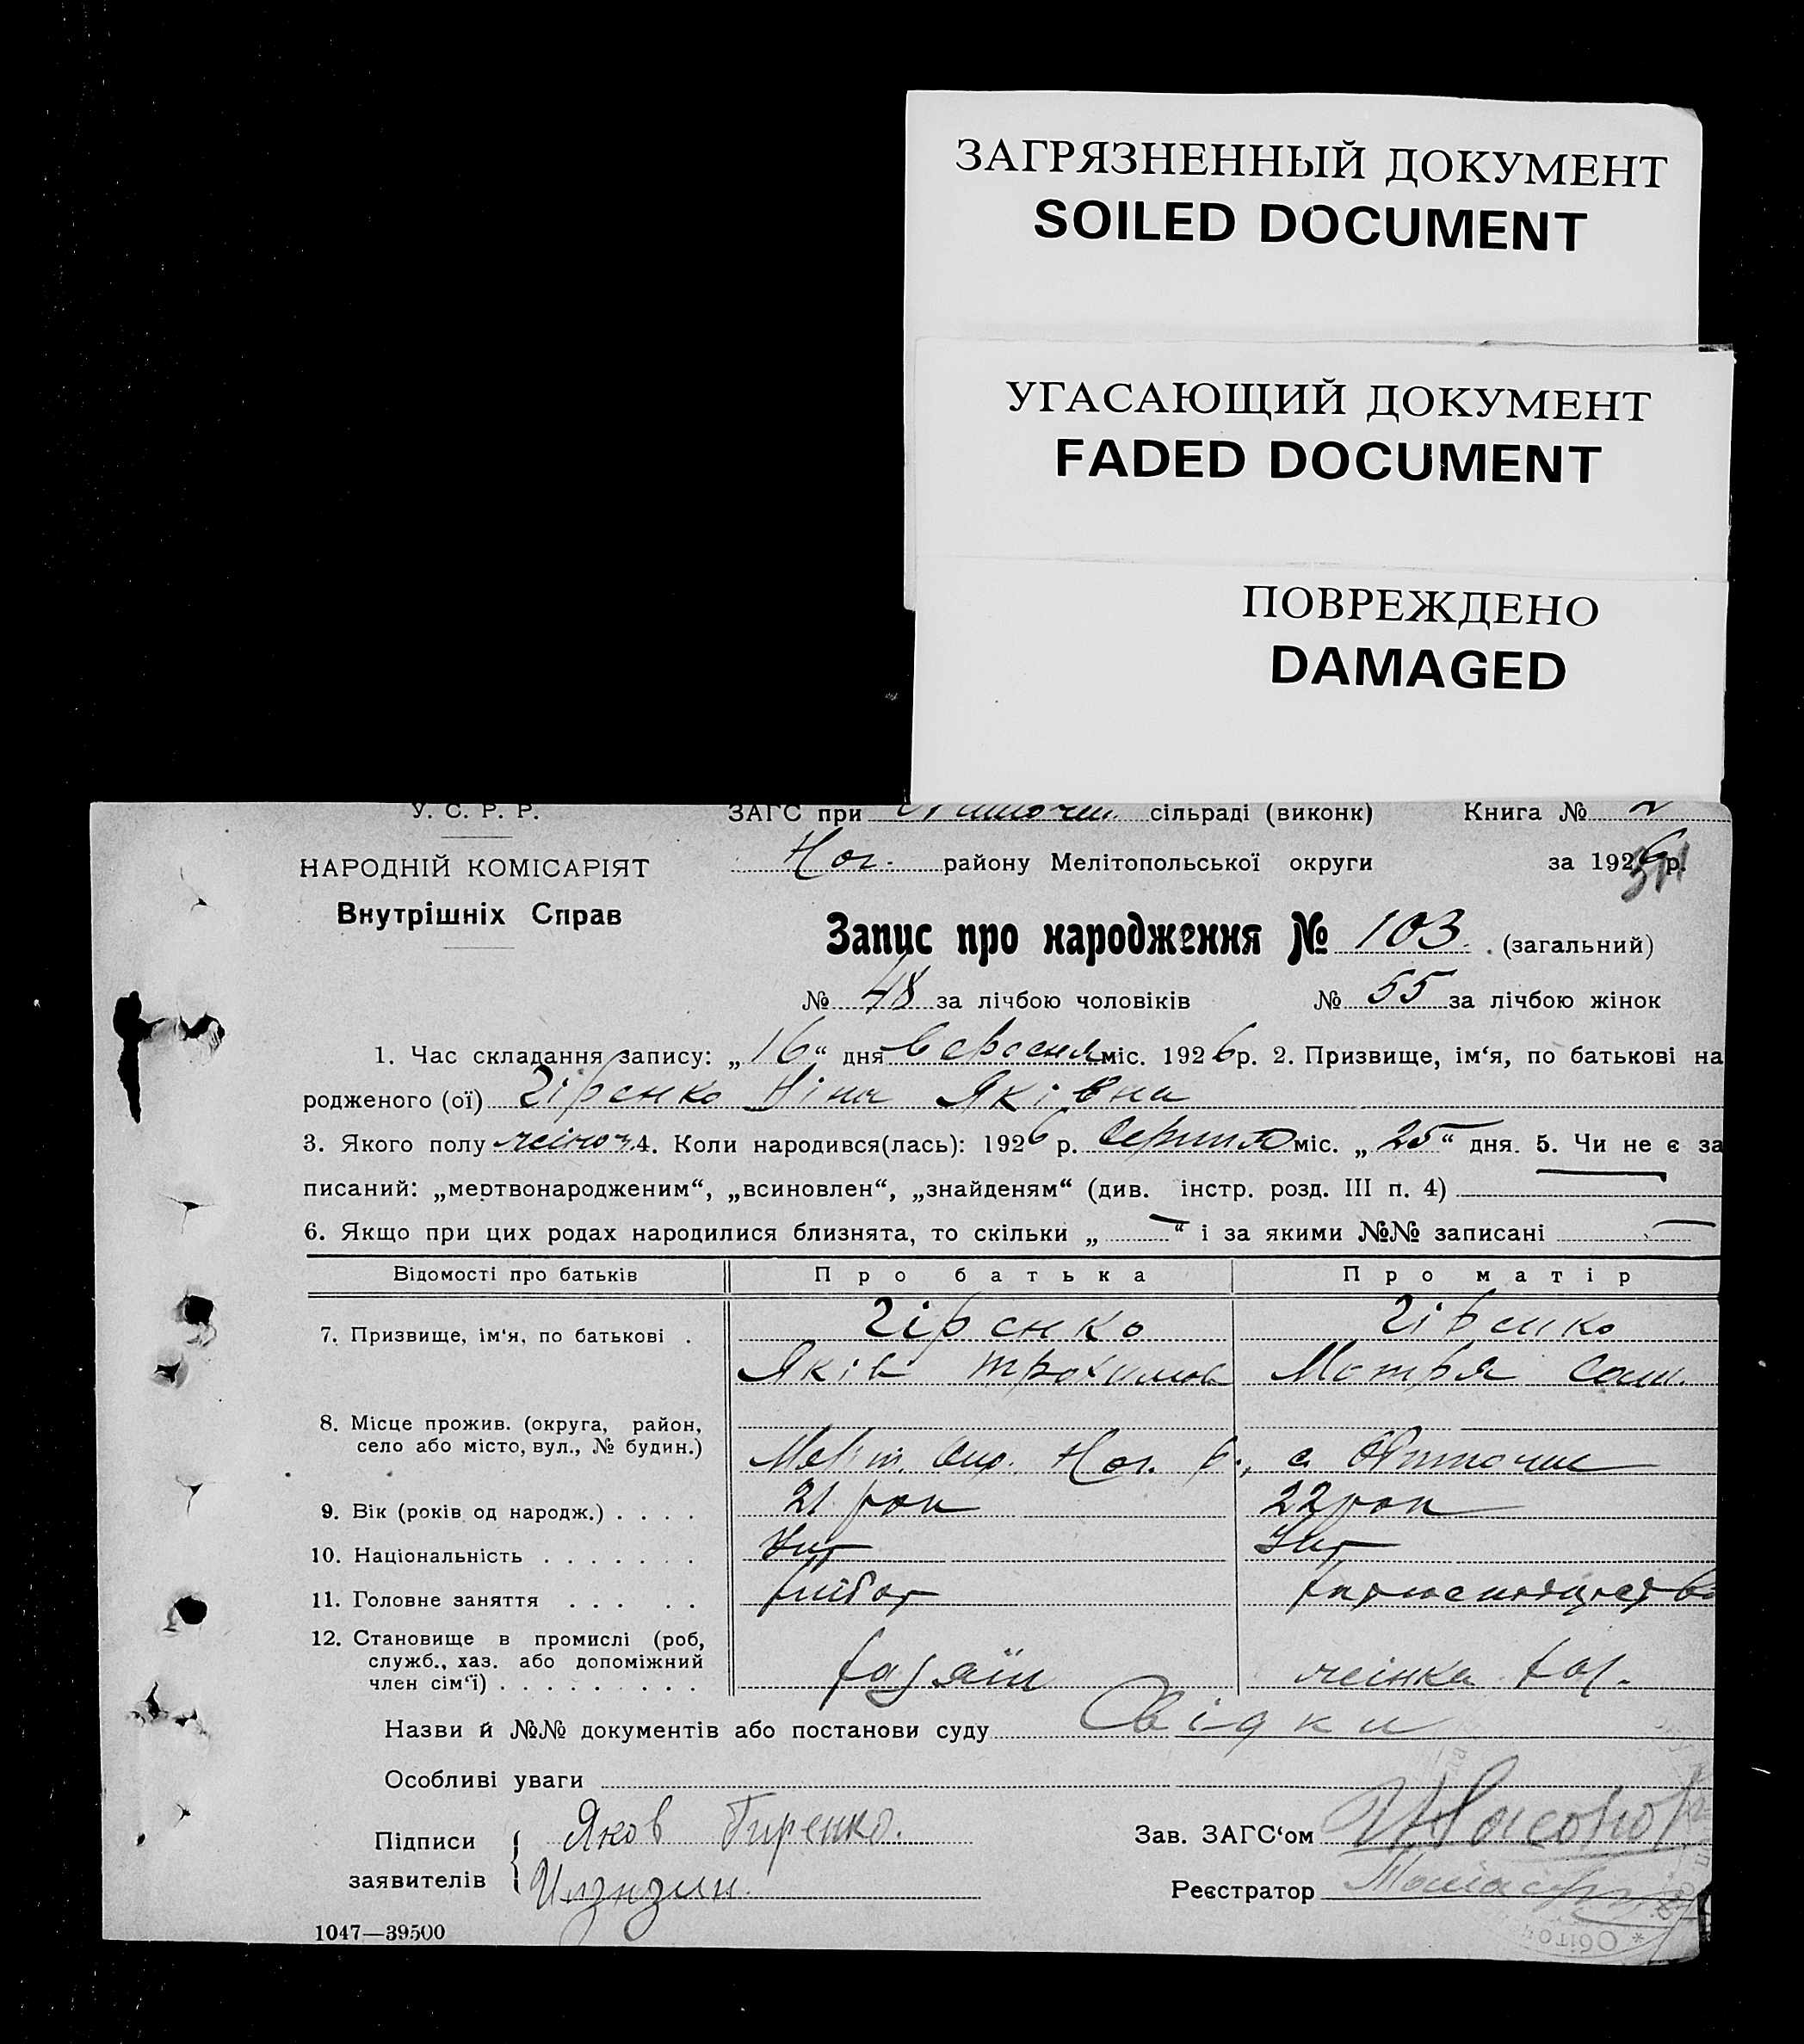 ЗАГРЯЗНЕННЫЙ ДОКУМЕНТ
SOILED DOCUMENT
УГАСАЮЩИЙ ДОКУМЕНТ
FADED DOCUMENT
ПОВРЕЖДЕНО
DAMAGED
У. С. Р. Р. ЗАГС при сільраді (виконк) Книга № 2
Ног. району Мелітопольської округи за 1926 р.
НАРОДНІЙ КОМІСАРІЯТ
Внутрішніх Справ
Запис про народження № 103. (загальний)
№ 48 за лічбою чоловіків № 55 за лічбою жінок
1. Час складання запису: „16“ дня вересня міс. 1926 р. 2. Призвище, ім‘я, по батькові на
родженого (ої) Гіренко Ніна Яківна
3. Якого полу жіноч. 4. Коли народився(лась): 1926 р. серпня міс. „25“ дня. 5. Чи не є за
писаний: „мертвонародженим“, „всиновлен“, „знайденям“ (див. інстр. розд. III п. 4)
6. Якщо при цих родах народилися близнята, то скільки „—“ і за якими №№ записані —
Відомості про батьків Про батька Про матір
7. Призвище, ім‘я, по батькові . Гіренко Гіренко
Яків Трохимов Мотря
8. Місце прожив. (округа, район,
село або місто, вул., № будин.)
Меліт. окр. Ног. р., с.
9. Вік (років од народж.) . . . . 21 рок 22 рок
10. Національність . . . . . . . Укр Укр
11. Головне заняття . . . . .
12. Становище в промислі (роб,
служб., хаз. або допоміжний
член сім‘ї) . . . . . . . . . хазяїн жінка хаз.
Назви й №№ документів або постанови суду Свідки
Особливі уваги
Підписи
заявителів
Яков Гиренко.
Зав. ЗАГС‘ом
Реєстратор
1047—39500